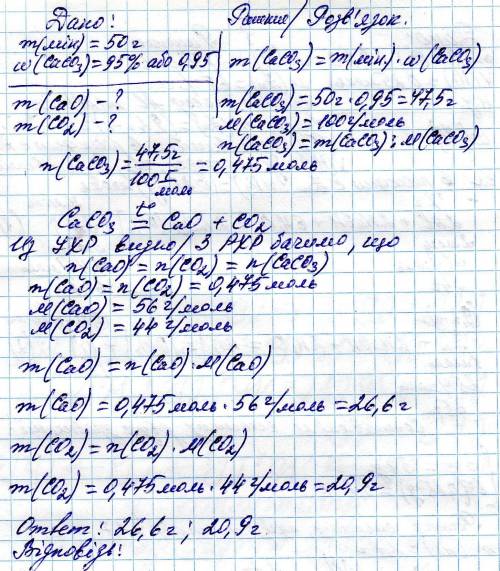 Дано:
m(мін) = 50г
w(CaCO₃) = 95% або 0,95
m(CaO) - ?
m(CO₂) - ?
Решение/ Розв'язок.
m(CaCO₃) = m(мін.) · w(CaCO₃)
m(CaCO₃) = 50г · 0,95 = 47,5г
M(CaCO₃) = 100г/моль
n(CaCO₃) = m(CaCO₃) : M(CaCO₃)
n(CaCO₃) = 47,5г / 100 г/моль = 0,475 моль
CaCO₃ t° = CaO + CO₂
Из УХР видно/ З РХР бачимо, що
n(CaO) = n(CO₂) = n(CaCO₃)
n(CaO) = n(CO₂) = 0,475 моль
M(CaO) = 56 г/моль
M(CO₂) = 44 г/моль
m(CaO) = n(CaO) · M(CaO)
m(CaO) = 0,475 моль · 56 г/моль = 26,6 г
m(CO₂) = n(CO₂) · M(CO₂)
m(CO₂) = 0,475 моль · 44 г/моль = 20,9г
Ответ: 26,6 г ; 20,9 г
Відповідь: